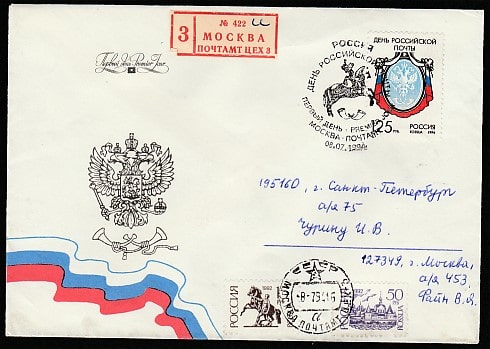 № 422
З
МОСКВА
ПОЧТАМТ ЦЕХ 3
Первый день
РОССИЯ
ДЕНЬ РОССИЙСКОЙ
ПЕРВЫЙ ДЕНЬ · PREMIER
МОСКВА · ПОЧТАМТ
08.07.1994
ДЕНЬ РОССИЙСКОЙ
ПОЧТЫ
125 РУБ.
РОССИЯ
ROSSIJA 1994
195160, г. Санкт-Петербург
а/я 75
Чурину И. В.
127349, г. Москва,
а/я 453,
Файн В.Я.
РОССИЯ
1992
СССР
МОСКВА
ПОЧТАМТ
50
РОССИЯ